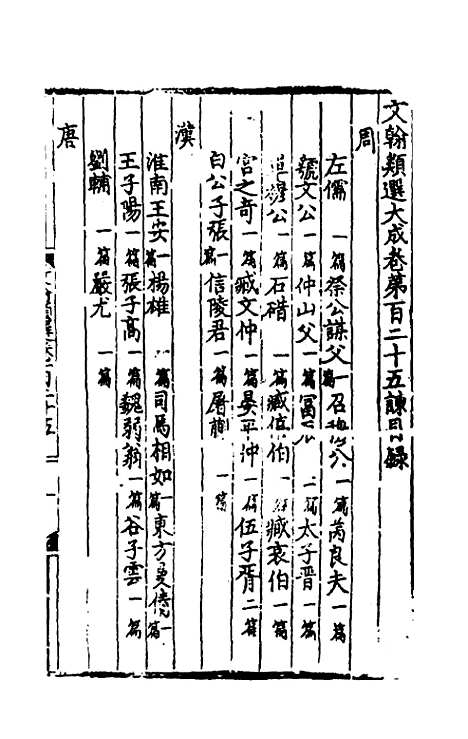 文翰類選大成卷第百二十五諫目錄
周
左儒 一篇 祭公謀父 一篇 召穆公 一篇 芮良夫 一篇
虢文公 一篇 仲山父 一篇 富辰 一篇 太子晉 一篇
單穆公 一篇 石碏 一篇 臧僖伯 一篇 臧哀伯 一篇
宮之奇 一篇 臧文仲 一篇 晏平仲 一篇 伍子胥 二篇
白公子張 一篇 信陵君 一篇 屠蒯 一篇
漢
淮南王安 一篇 楊雄 一篇 司馬相如 一篇 東方曼倩 一篇
王子陽 一篇 張子高 一篇 魏弱翁 一篇 谷子雲 一篇
劉輔 一篇 嚴尤 一篇
唐